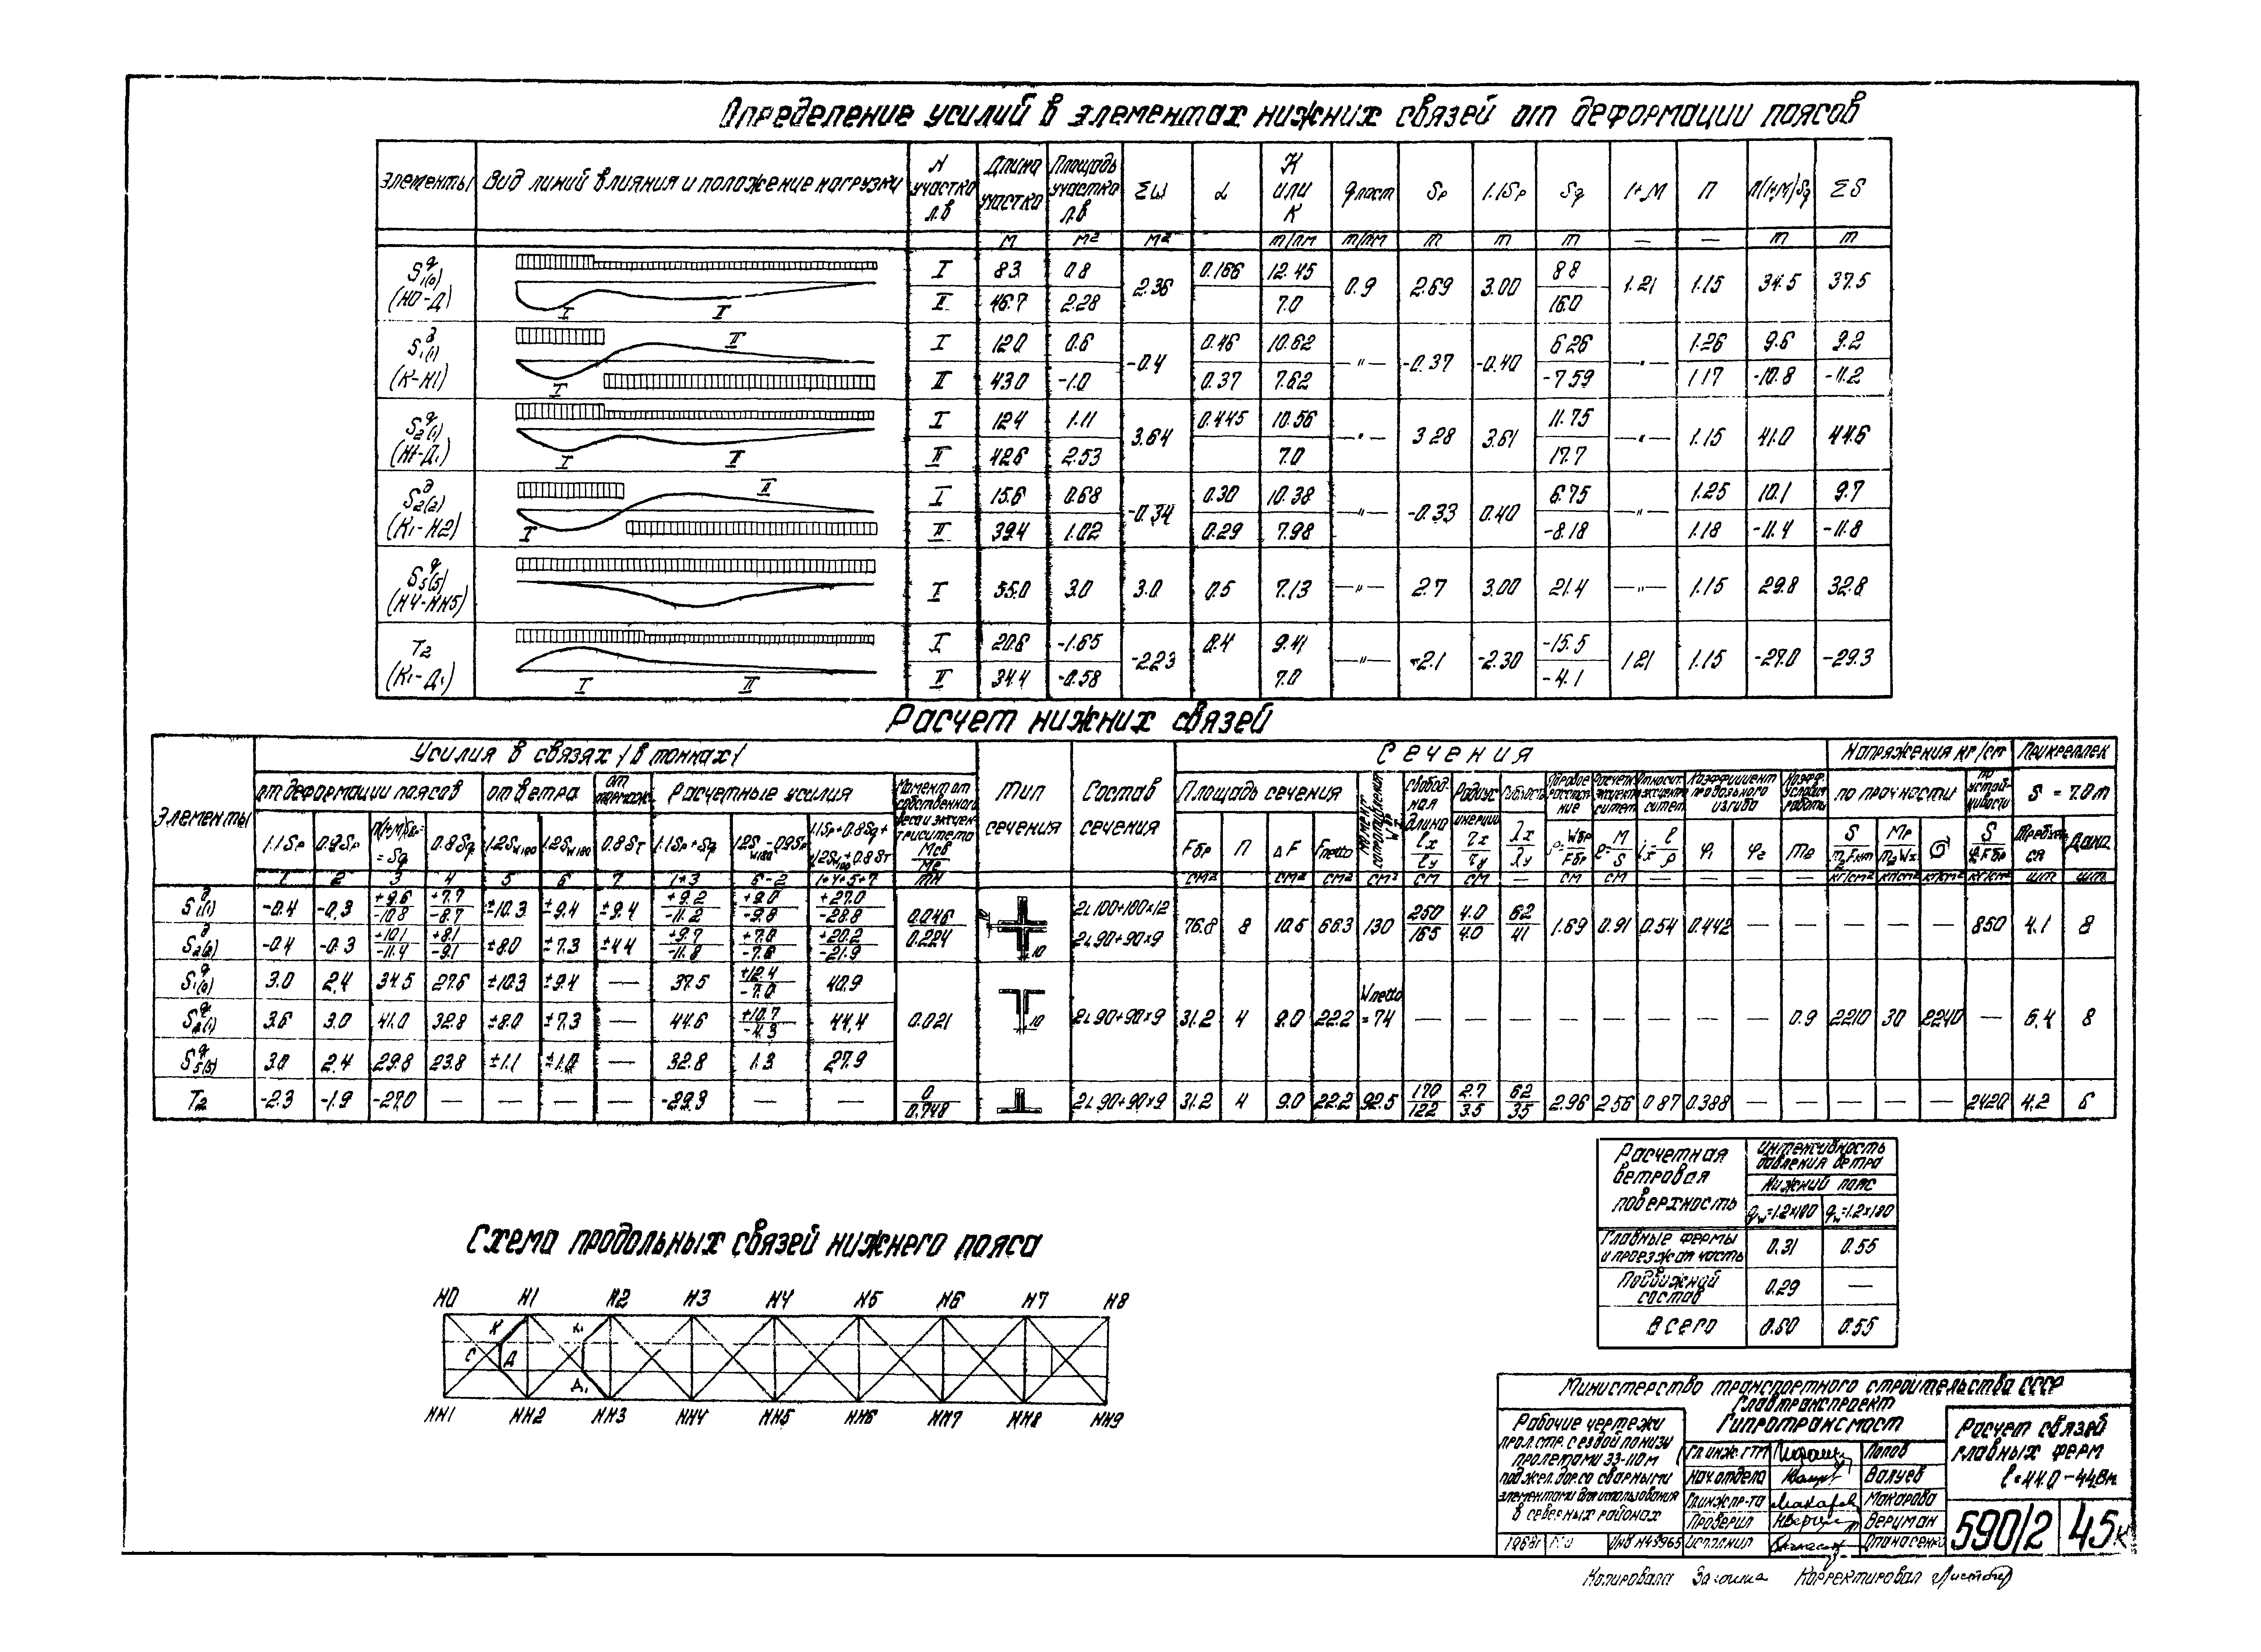 Определение усилий в элементах нижних связей от деформации поясов
Элементы Вид линий влияния и положение нагрузки N участка л.в Длина участка Площадь участка л.в Σω α K или К qпаст Sp 1.1Sp Sq 1+M П П(1+M)Sq ΣS
м м² м² т/пм т/пм т т т — — т т
S₁₍₀₎ (Н0-Д) I 8.3 0.8 2.36 0.166 12.45 0.9 2.69 3.00 8.8 1.21 1.15 34.5 37.5
II 46.7 2.28 7.0 16.0
S₁₍₁₎ (К-Н1) I 12.0 0.6 -0.4 0.46 10.62 —"— -0.37 -0.40 6.26 —"— 1.26 9.6 9.2
II 43.0 -1.0 0.37 7.62 -7.59 1.17 -10.8 -11.2
S₂₍₁₎ (Н1-Д₁) I 12.4 1.11 3.64 0.445 10.56 —"— 3.28 3.61 11.75 —"— 1.15 41.0 44.6
II 42.6 2.53 7.0 17.7
S₂₍₂₎ (К₁-Н2) I 15.6 0.68 -0.34 0.30 10.38 —"— -0.33 0.40 6.75 —"— 1.25 10.1 9.7
II 39.4 1.02 0.29 7.98 -8.18 1.18 -11.4 -11.8
S₅₍₅₎ (Н4-НН5) I 55.0 3.0 3.0 0.5 7.13 —"— 2.7 3.00 21.4 —"— 1.15 29.8 32.8
T₂ (К₁-Д₁) I 20.6 -1.65 -2.23 0.4 9.41 —"— -2.1 -2.30 -15.5 1.21 1.15 -27.0 -29.3
II 34.4 -0.58 7.0 -4.1
Расчет нижних связей
Элементы Усилия в связях /в тоннах/ Тип сечения Состав сечения Сечения Напряжения кг/см Прикреплен
от деформации поясов от ветра от тормож. Расчетные усилия Момент от собственного веса и эксцентриситета Площадь сечения Момент сопротивления Свободная длина Радиус инерции Гибкость Ядровое расстояние Расчетн. эксцентриситет Относит. эксцентриситет Коэффициент продольного изгиба Коэфф. условия работы по прочности по устойчивости S = 7.0т
1.1Sp 0.9Sp П(1+M)Sq= = Sq 0.8Sq 1.2Sw100 1.2Sw180 0.8Sт 1.1Sp+Sq 1.2Sw180-0.9Sp 1.1Sp+0.8Sq+1.2Sw100+0.8Sт Mсв/Mе Fбр П ΔF Fnetto lx/ly rx/ry λx/λy ρ=Wбр/Fбр e=M/S i=e/ρ φ₁ φ₂ m₂ S/m₂Fнт Mp/m₂Wx σ S/φFбр Требуется Дано
1 2 3 4 5 6 7 1+3 6-2 1+4+5+7 тм см² см² см² см³ см см — см см — кг/см² кг/см² кг/см² кг/см² шт шт
S₁₍₁₎ -0.4 -0.3 +9.6/-10.8 +7.7/-8.7 ±10.3 ±9.4 ±9.4 +9.2/-11.2 +9.0/-9.8 +27.0/-28.8 0.046/0.224 10 2L100+100×12 2L90+90×9 76.8 8 10.5 66.3 130 260/165 4.0/4.0 62/41 1.69 0.91 0.54 0.442 — — — — — 850 4.1 8
S₂₍₂₎ -0.4 -0.3 +10.1/-11.4 +8.1/-9.1 ±8.0 ±7.3 ±4.4 +9.7/-11.8 +7.0/-7.6 +20.2/-21.9
S₁₍₀₎ 3.0 2.4 34.5 27.6 ±10.3 ±9.4 — 37.5 +12.4/-7.0 40.9
S₂₍₁₎ 3.6 3.0 41.0 32.8 ±8.0 ±7.3 — 44.6 +10.7/-4.3 44.4 0.021 10 2L90+90×9 31.2 4 9.0 22.2 Wnetto = 74 — — — — — — — — 0.9 2210 30 2240 — 6.4 8
S₅₍₅₎ 3.0 2.4 29.8 23.8 ±1.1 ±1.0 — 32.8 1.3 27.9
T₂ -2.3 -1.9 -27.0 — — — — -29.3 — — 0/0.748 2L90+90×9 31.2 4 9.0 22.2 92.5 170/122 2.7/3.5 62/35 2.96 2.56 0.87 0.388 — — — — — 2420 4.2 6
Расчетная ветровая поверхность Интенсивность давления ветра
Нижний пояс
qw=1.2×100 qw=1.2×180
Главные фермы и проезжая часть 0.31 0.55
Подвижной состав 0.29 —
Всего 0.60 0.55
Схема продольных связей нижнего пояса
Н0 Н1 Н2 Н3 Н4 Н5 Н6 Н7 Н8
К К₁
С Д
Д₁
НН1 НН2 НН3 НН4 НН5 НН6 НН7 НН8 НН9
Министерство транспортного строительства СССР
Главтранспроект
Гипротрансмост
Рабочие чертежи
прол.стр. с ездой понизу
пролетами 33-110м
под жел.дор. со сварными
элементами для использования
в северных районах
Гл.инж. ГТМ Попов
Нач.отдела Валуев
Гл.инж.пр-та Макарова
Проверил Верцман
1968г Инв N43965 Исполнил Опанасенко
Расчет связей
главных ферм
l=44.0-44.8м.
590/2 45к
Копировала Корректировал